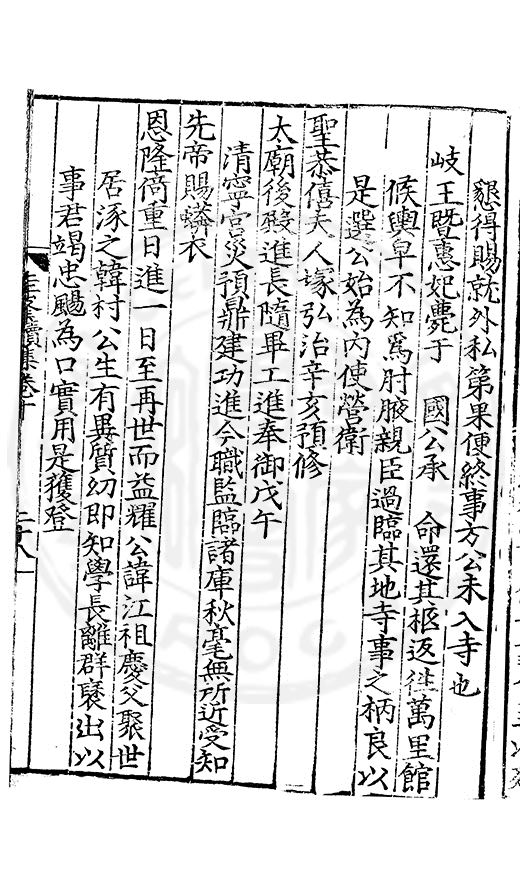 懇得賜就外私第果便終事方公未入寺也
岐王暨惠妃薨于 國公承 命還其柩返徃萬里館
候輿皁不知爲肘腋親臣過臨其地寺事之柄良以
是選公始為内使營衛
聖恭僖夫人塚弘治辛亥預修
太廟後殿進長隨畢工進奉御戊午
清寧宮災預鼎建功進今職監臨諸庫秋毫無所近受知
先帝賜蟒衣
恩隆倚重日進一日至再世而益耀公諱江祖慶父聚世
居涿之韓村公生有異質幼即知學長離群裒出以
事君竭忠颺為口實用是獲登
圭峯續集卷十